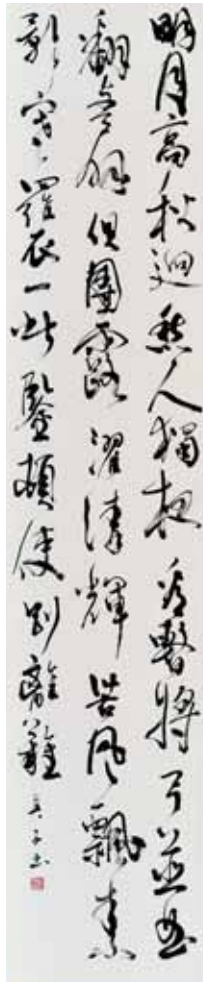 明月高秋迥愁人獨夜看暫將弓並曲
翻與扇俱團露濯清輝苦風飄素
影寒羅衣一此鑒頓使別離難